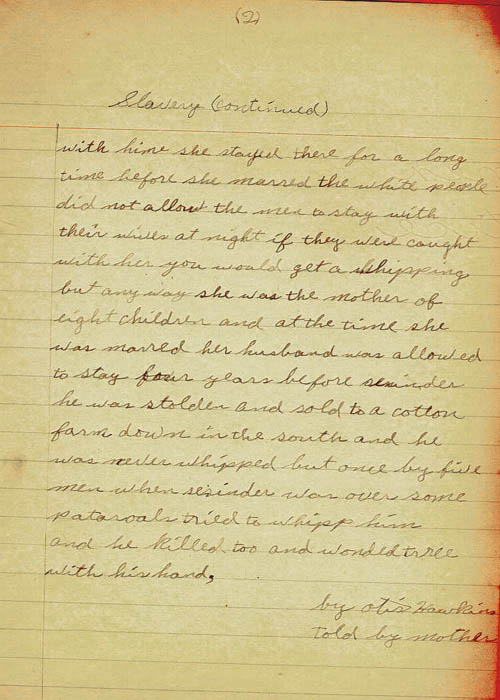 (2)
Slavery (continued)
with hime she stayed there for a long
time before she marred the white people
did not allow the men to stay with
their wives at night if they were caught
with her you would get a whipping
but any way she was the mother of
eight children and at the time she
was marred her husband was allowed
to stay four years before seninder
he was stolden and sold to a cotton
farm down in the south and he
was never whipped but once by five
men when sesinder was over some
pataroals tried to whipp him
and he killed too and wonded tree
with his hand,
by otis Hawkins
told by mother